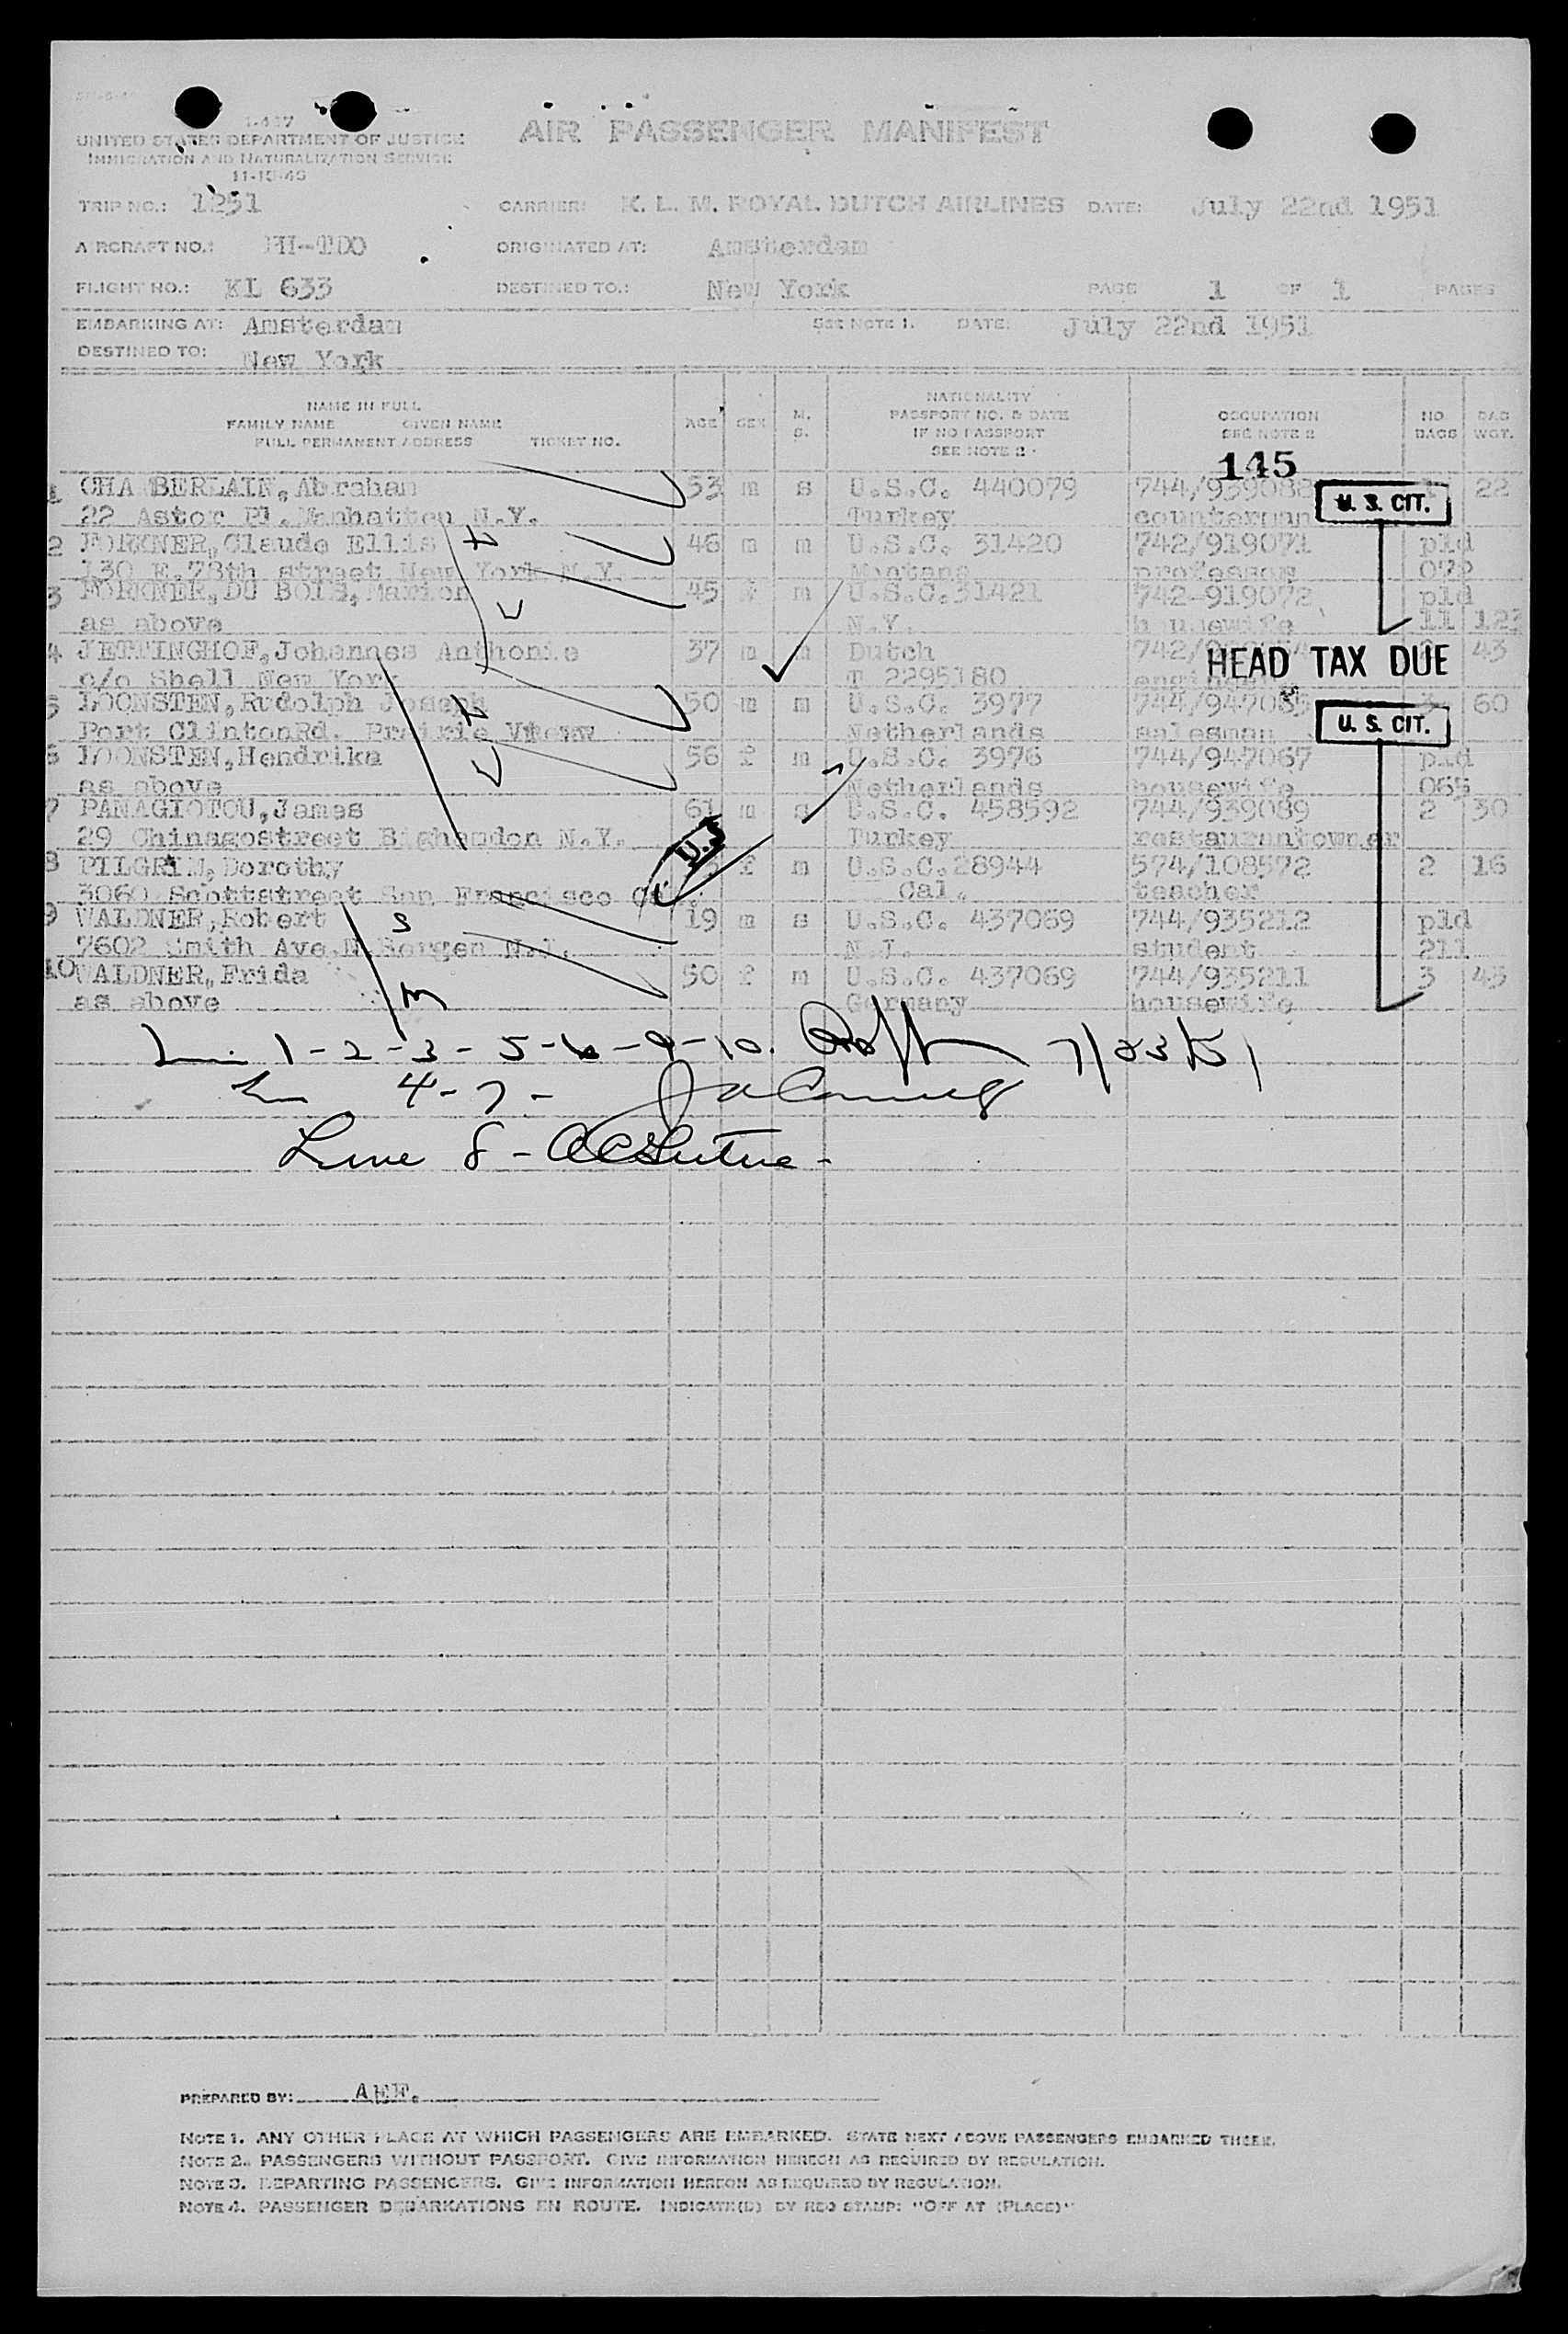 I-437
UNITED STATES DEPARTMENT OF JUSTICE
IMMIGRATION AND NATURALIZATION SERVICE
11-15-45
AIR PASSENGER MANIFEST
TRIP NO.: 1251 CARRIER: K. L. M. ROYAL DUTCH AIRLINES DATE: July 22nd 1951
AIRCRAFT NO.: PH-TDO ORIGINATED AT: Amsterdam
FLIGHT NO.: KL 633 DESTINED TO.: New York PAGE 1 OF 1 PAGES
EMBARKING AT: Amsterdam SEE NOTE 1. DATE: July 22nd 1951
DESTINED TO: New York
NAME IN FULL
FAMILY NAME GIVEN NAME
FULL PERMANENT ADDRESS TICKET NO.
AGE SEX M. S.
NATIONALITY
PASSPORT NO. & DATE
IF NO PASSPORT
SEE NOTE 2
OCCUPATION
SEE NOTE 2
NO BAGS
BAG WGT.
145
1 CHA BERLAIN, Abraham 53 m s U.S.C. 440079 744/939088 22
22 Astor Pl. Manhatten N.Y. Turkey counterman
U. S. CIT.
2 FORKNER, Claude Ellis 46 m m U.S.C. 31420 742/919071 pld
130 E.78th street New York N.Y. Montana professor 072
3 FORKNER, DU BOIS, Marion 45 f m U.S.C.31421 742-919072 pld
as above N.Y. housewife 11 122
4 JETTINGHOF, Johannes Anthonie 37 m m Dutch 43
c/o Shell New York T 2295180 engineer
HEAD TAX DUE
5 LOONSTEN, Rudolph Joseph 50 m m U.S.C. 3977 744/947065 3 60
Port ClintonRd. Prairie View Netherlands salesman
U. S. CIT.
6 LOONSTEN, Hendrika 56 f m U.S.C. 3976 744/947067 pld
as above Netherlands housewife 065
7 PANAGIOTOU, James 61 m s U.S.C. 458592 744/939089 2 30
29 Chinagostreet Binghamdon N.Y. Turkey restaurantowner
8 PILGRIM, Dorothy f m U.S.C.28944 574/108572 2 16
3060 Scottstreet San Francisco Cal. Cal. teacher
9 WALDNER, Robert S 19 m s U.S.C. 437069 744/935212 pld
7602 Smith Ave.N.Bergen N.J. N.J. student 211
10 WALDNER, Frida m 50 f m U.S.C. 437069 744/935211 3 43
as above Germany housewife
1-2-3-5-6-9-10. 7/23/51
4-7-
Line 8 -
PREPARED BY: AEF.
NOTE 1. ANY OTHER PLACE AT WHICH PASSENGERS ARE EMBARKED. STATE NEXT ABOVE PASSENGERS EMBARKED THERE.
NOTE 2. PASSENGERS WITHOUT PASSPORT. GIVE INFORMATION HEREON AS REQUIRED BY REGULATION.
NOTE 3. DEPARTING PASSENGERS. GIVE INFORMATION HEREON AS REQUIRED BY REGULATION.
NOTE 4. PASSENGER DEBARKATIONS EN ROUTE. INDICATE(D) BY RED STAMP: "OFF AT (PLACE)"